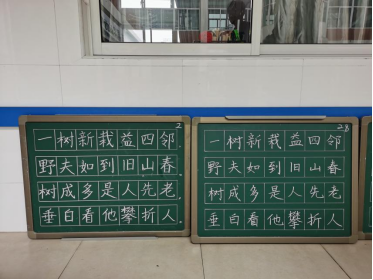 2
一树新栽益四邻
野夫如到旧山春
树成多是人先老
垂白看他攀折人
28
一树新栽益四邻
野夫如到旧山春
树成多是人先老
垂白看他攀折人